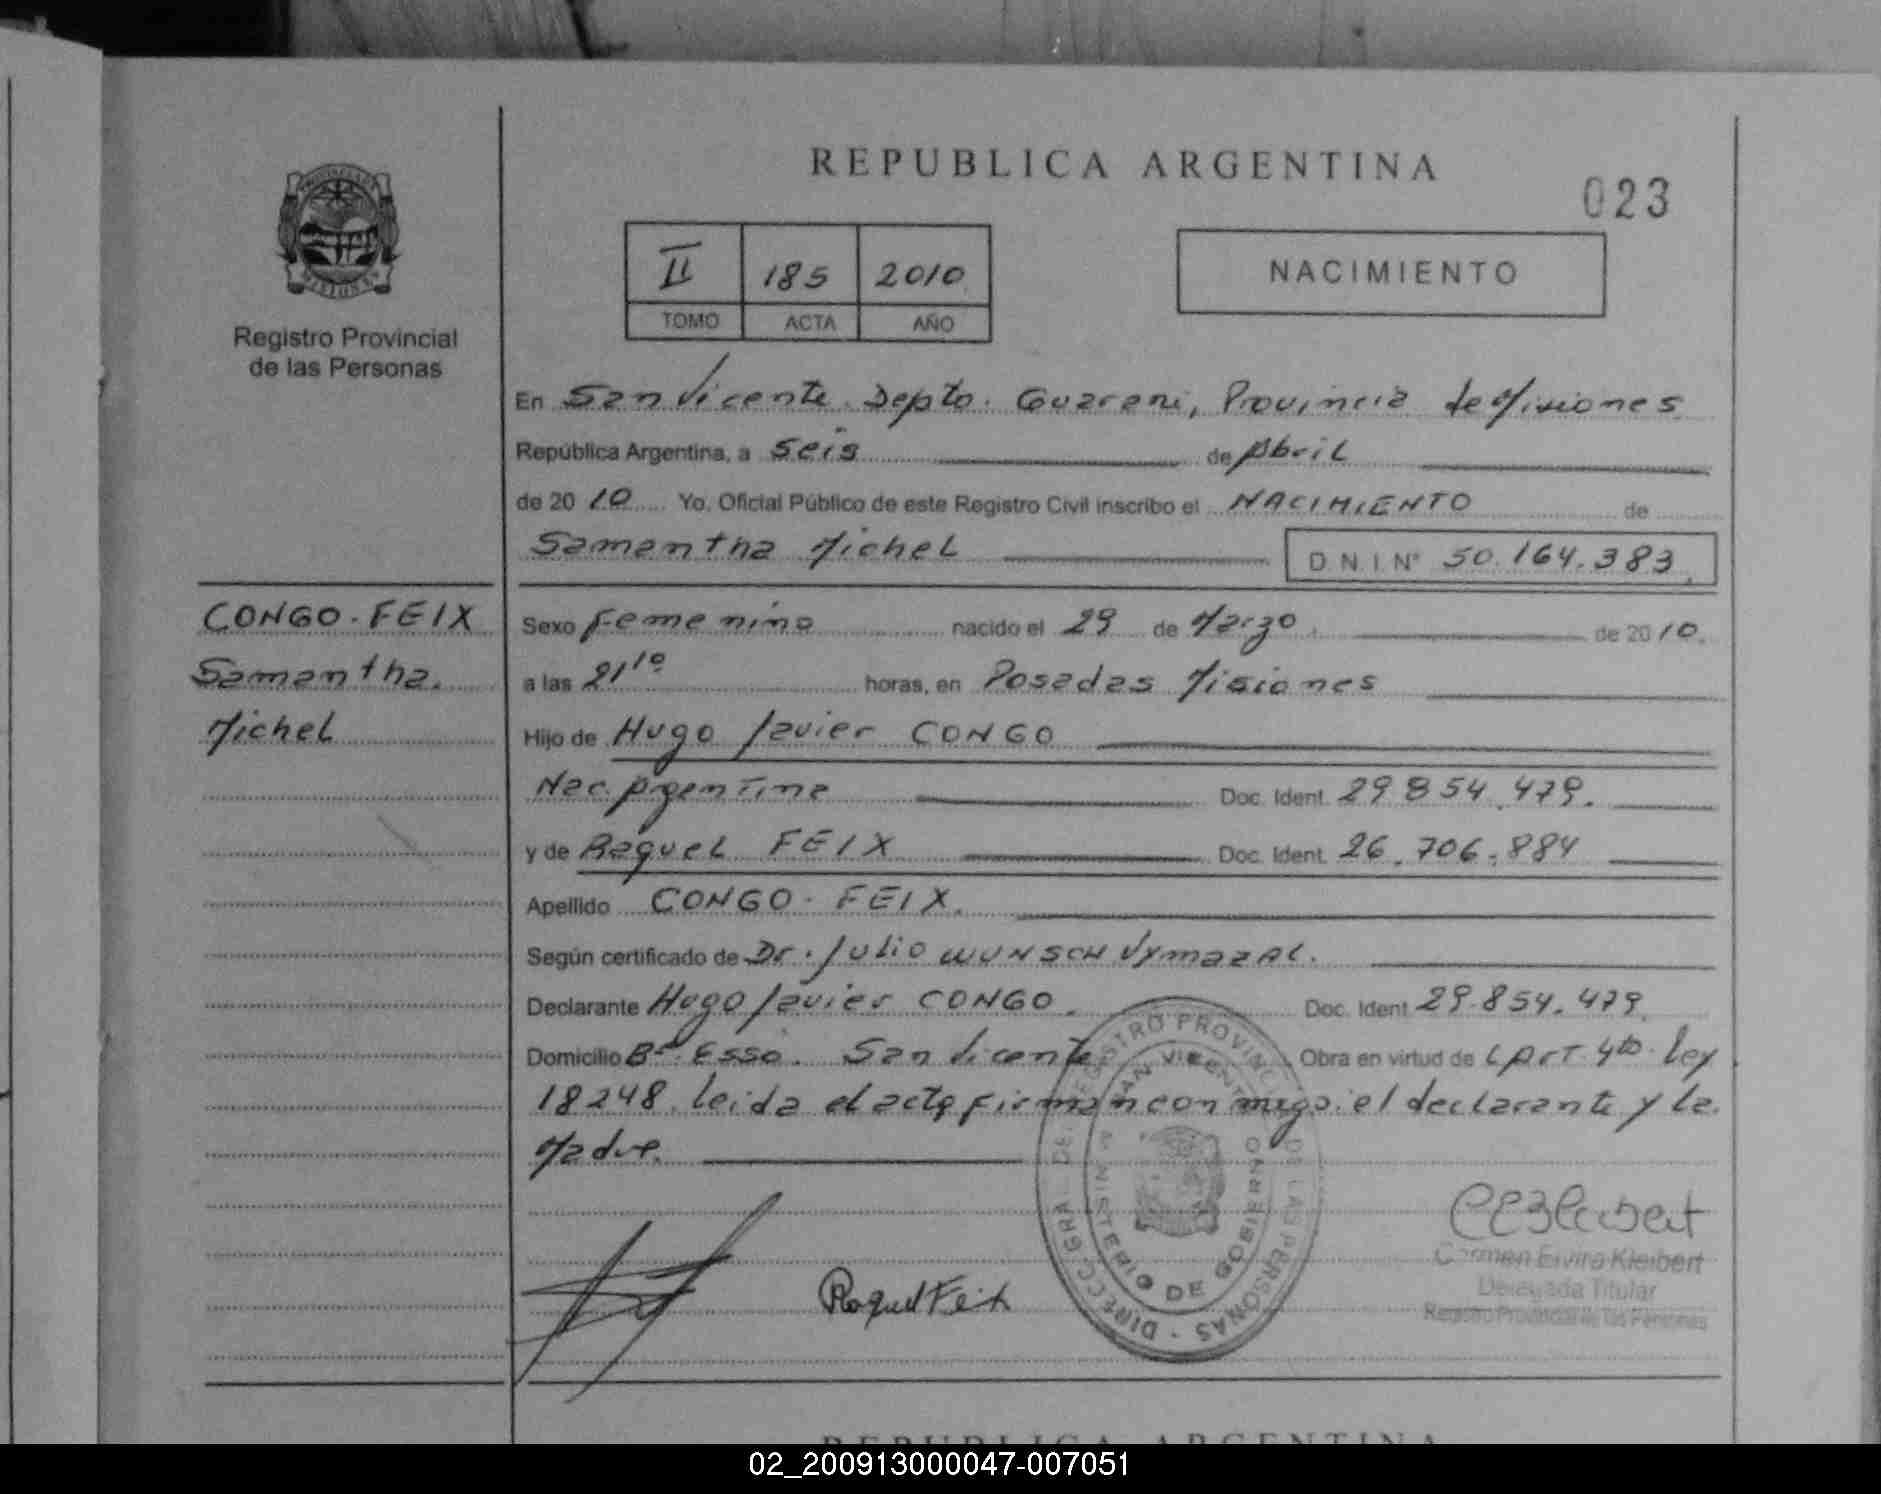 REPUBLICA ARGENTINA
023
II 185 2010
TOMO ACTA AÑO
NACIMIENTO
Registro Provincial
de las Personas
En San Vicente. Depto. Guarani, Provincia de Misiones
República Argentina, a Seis de Abril
de 2010 Yo, Oficial Público de este Registro Civil inscribo el NACIMIENTO de
Samantha Michel D.N.I. Nº 50.164.383
CONGO-FEIX
Samantha.
Michel
Sexo Femenino nacido el 29 de Marzo. de 2010.
a las 21¹⁰ horas, en Posadas Misiones
Hijo de Hugo Javier CONGO
Nac. Argentina Doc. Ident. 29.854.479.
y de Raquel FEIX Doc. Ident. 26.706.884
Apellido CONGO-FEIX.
Según certificado de Dr. Julio WUNSCH Vymazal.
Declarante Hugo Javier CONGO. Doc. Ident 29.854.479.
Domicilio Bº Esso. San Vicente Obra en virtud de L Art. 4to. ley
18248. leida el acta firman conmigo. el declarante y la.
Madre.
Raquel Feix
DIRECC. GRAL. DEL REGISTRO PROVINCIAL DE LAS PERSONAS
SAN VICENTE
MINISTERIO DE GOBIERNO
Carmen Elvira Kleibert
Delegada Titular
Registro Provincial de las Personas
REPUBLICA ARGENTINA
02_200913000047-007051